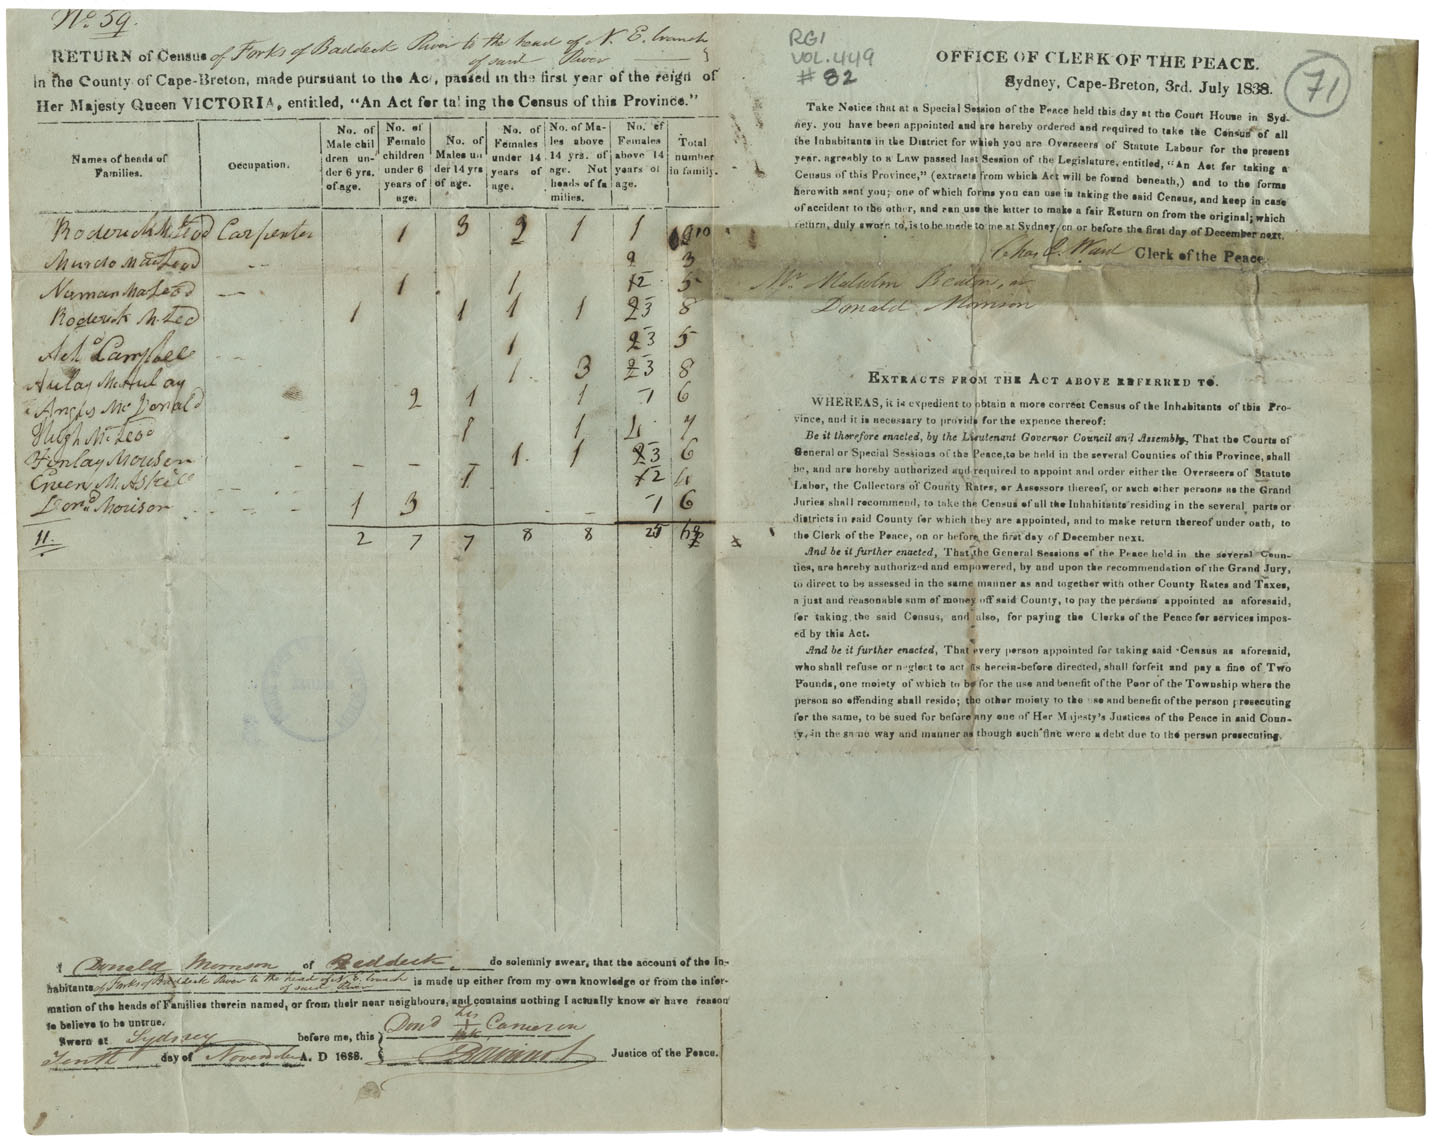 No. 59.
RETURN of Census of Forks of Baddeck River to the head of N. E. branch
of said River
in the County of Cape-Breton, made pursuant to the Act, passed in the first year of the reign of
Her Majesty Queen VICTORIA, entitled, "An Act for taking the Census of this Province."
Names of heads of Families. Occupation. No. of Male children under 6 yrs. of age. No. of Female children under 6 years of age. No. of Males under 14 yrs of age. No. of Females under 14 years of age. No. of Males above 14 yrs. of age. Not heads of families. No. of Females above 14 years of age. Total number in family.
Roderick McLeod Carpenter 1 3 2 1 1 10
Murdo McLeod 2 3
Norman McLeod 1 1 2 5
Roderick McLeod 1 1 1 1 3 8
Archd Campbell 1 3 5
Aulay McAulay 1 3 3 8
Angus McDonald 2 1 1 1 6
Hugh McLeod 1 1 4 7
Finlay Morison 1 1 3 6
Ewen McAskill 1 2 4
Dond Morison 1 3 1 6
11. 2 7 7 8 8 25 68
I Donald Morrison of Baddeck, do solemnly swear, that the account of the In-
habitants of Forks of Baddeck River to the head of N. E. branch of said River is made up either from my own knowledge or from the infor-
mation of the heads of Families therein named, or from their near neighbours, and contains nothing I actually know or have reason
to believe to be untrue.
Sworn at Sydney before me, this
Tenth day of November A. D 1838.
Dond his Cameron
mark
Justice of the Peace.
RG1
VOL. 449
# 82
71
OFFICE OF CLERK OF THE PEACE.
Sydney, Cape-Breton, 3rd. July 1838.
Take Notice that at a Special Session of the Peace held this day at the Court House in Syd-
ney. you have been appointed and are hereby ordered and required to take the Census of all
the Inhabitants in the District for which you are Overseers of Statute Labour for the present
year. agreably to a Law passed last Session of the Legislature, entitled, "An Act for taking a
Census of this Province," (extracts from which Act will be found beneath,) and to the forms
herewith sent you; one of which forms you can use in taking the said Census, and keep in case
of accident to the other, and can use the latter to make a fair Return on from the original; which
return, duly sworn to, is to be made to me at Sydney, on or before the first day of December next.
Chas E. Ward Clerk of the Peace
Mr. Malcolm Beaton, or
Donald Morrison
EXTRACTS FROM THE ACT ABOVE REFERRED TO.
WHEREAS, it is expedient to obtain a more correct Census of the Inhabitants of this Pro-
vince, and it is necessary to provide for the expence thereof:
Be it therefore enacted, by the Lieutenant Governor Council and Assembly, That the Courts of
General or Special Sessions of the Peace, to be held in the several Counties of this Province, shall
be, and are hereby authorized and required to appoint and order either the Overseers of Statute
Labor, the Collectors of County Rates, or Assessors thereof, or such other persons as the Grand
Juries shall recommend, to take the Census of all the Inhabitants residing in the several parts or
districts in said County for which they are appointed, and to make return thereof under oath, to
the Clerk of the Peace, on or before the first day of December next.
And be it further enacted, That the General Sessions of the Peace held in the several Coun-
ties, are hereby authorized and empowered, by and upon the recommendation of the Grand Jury,
to direct to be assessed in the same manner as and together with other County Rates and Taxes,
a just and reasonable sum of money off said County, to pay the persons appointed as aforesaid,
for taking the said Census, and also, for paying the Clerks of the Peace for services impos-
ed by this Act.
And be it further enacted, That every person appointed for taking said Census as aforesaid,
who shall refuse or neglect to act as herein-before directed, shall forfeit and pay a fine of Two
Pounds, one moiety of which to be for the use and benefit of the Poor of the Township where the
person so offending shall reside; the other moiety to the use and benefit of the person prosecuting
for the same, to be sued for before any one of Her Majesty's Justices of the Peace in said Coun-
ty, in the same way and manner as though such fine were a debt due to the person prosecuting.